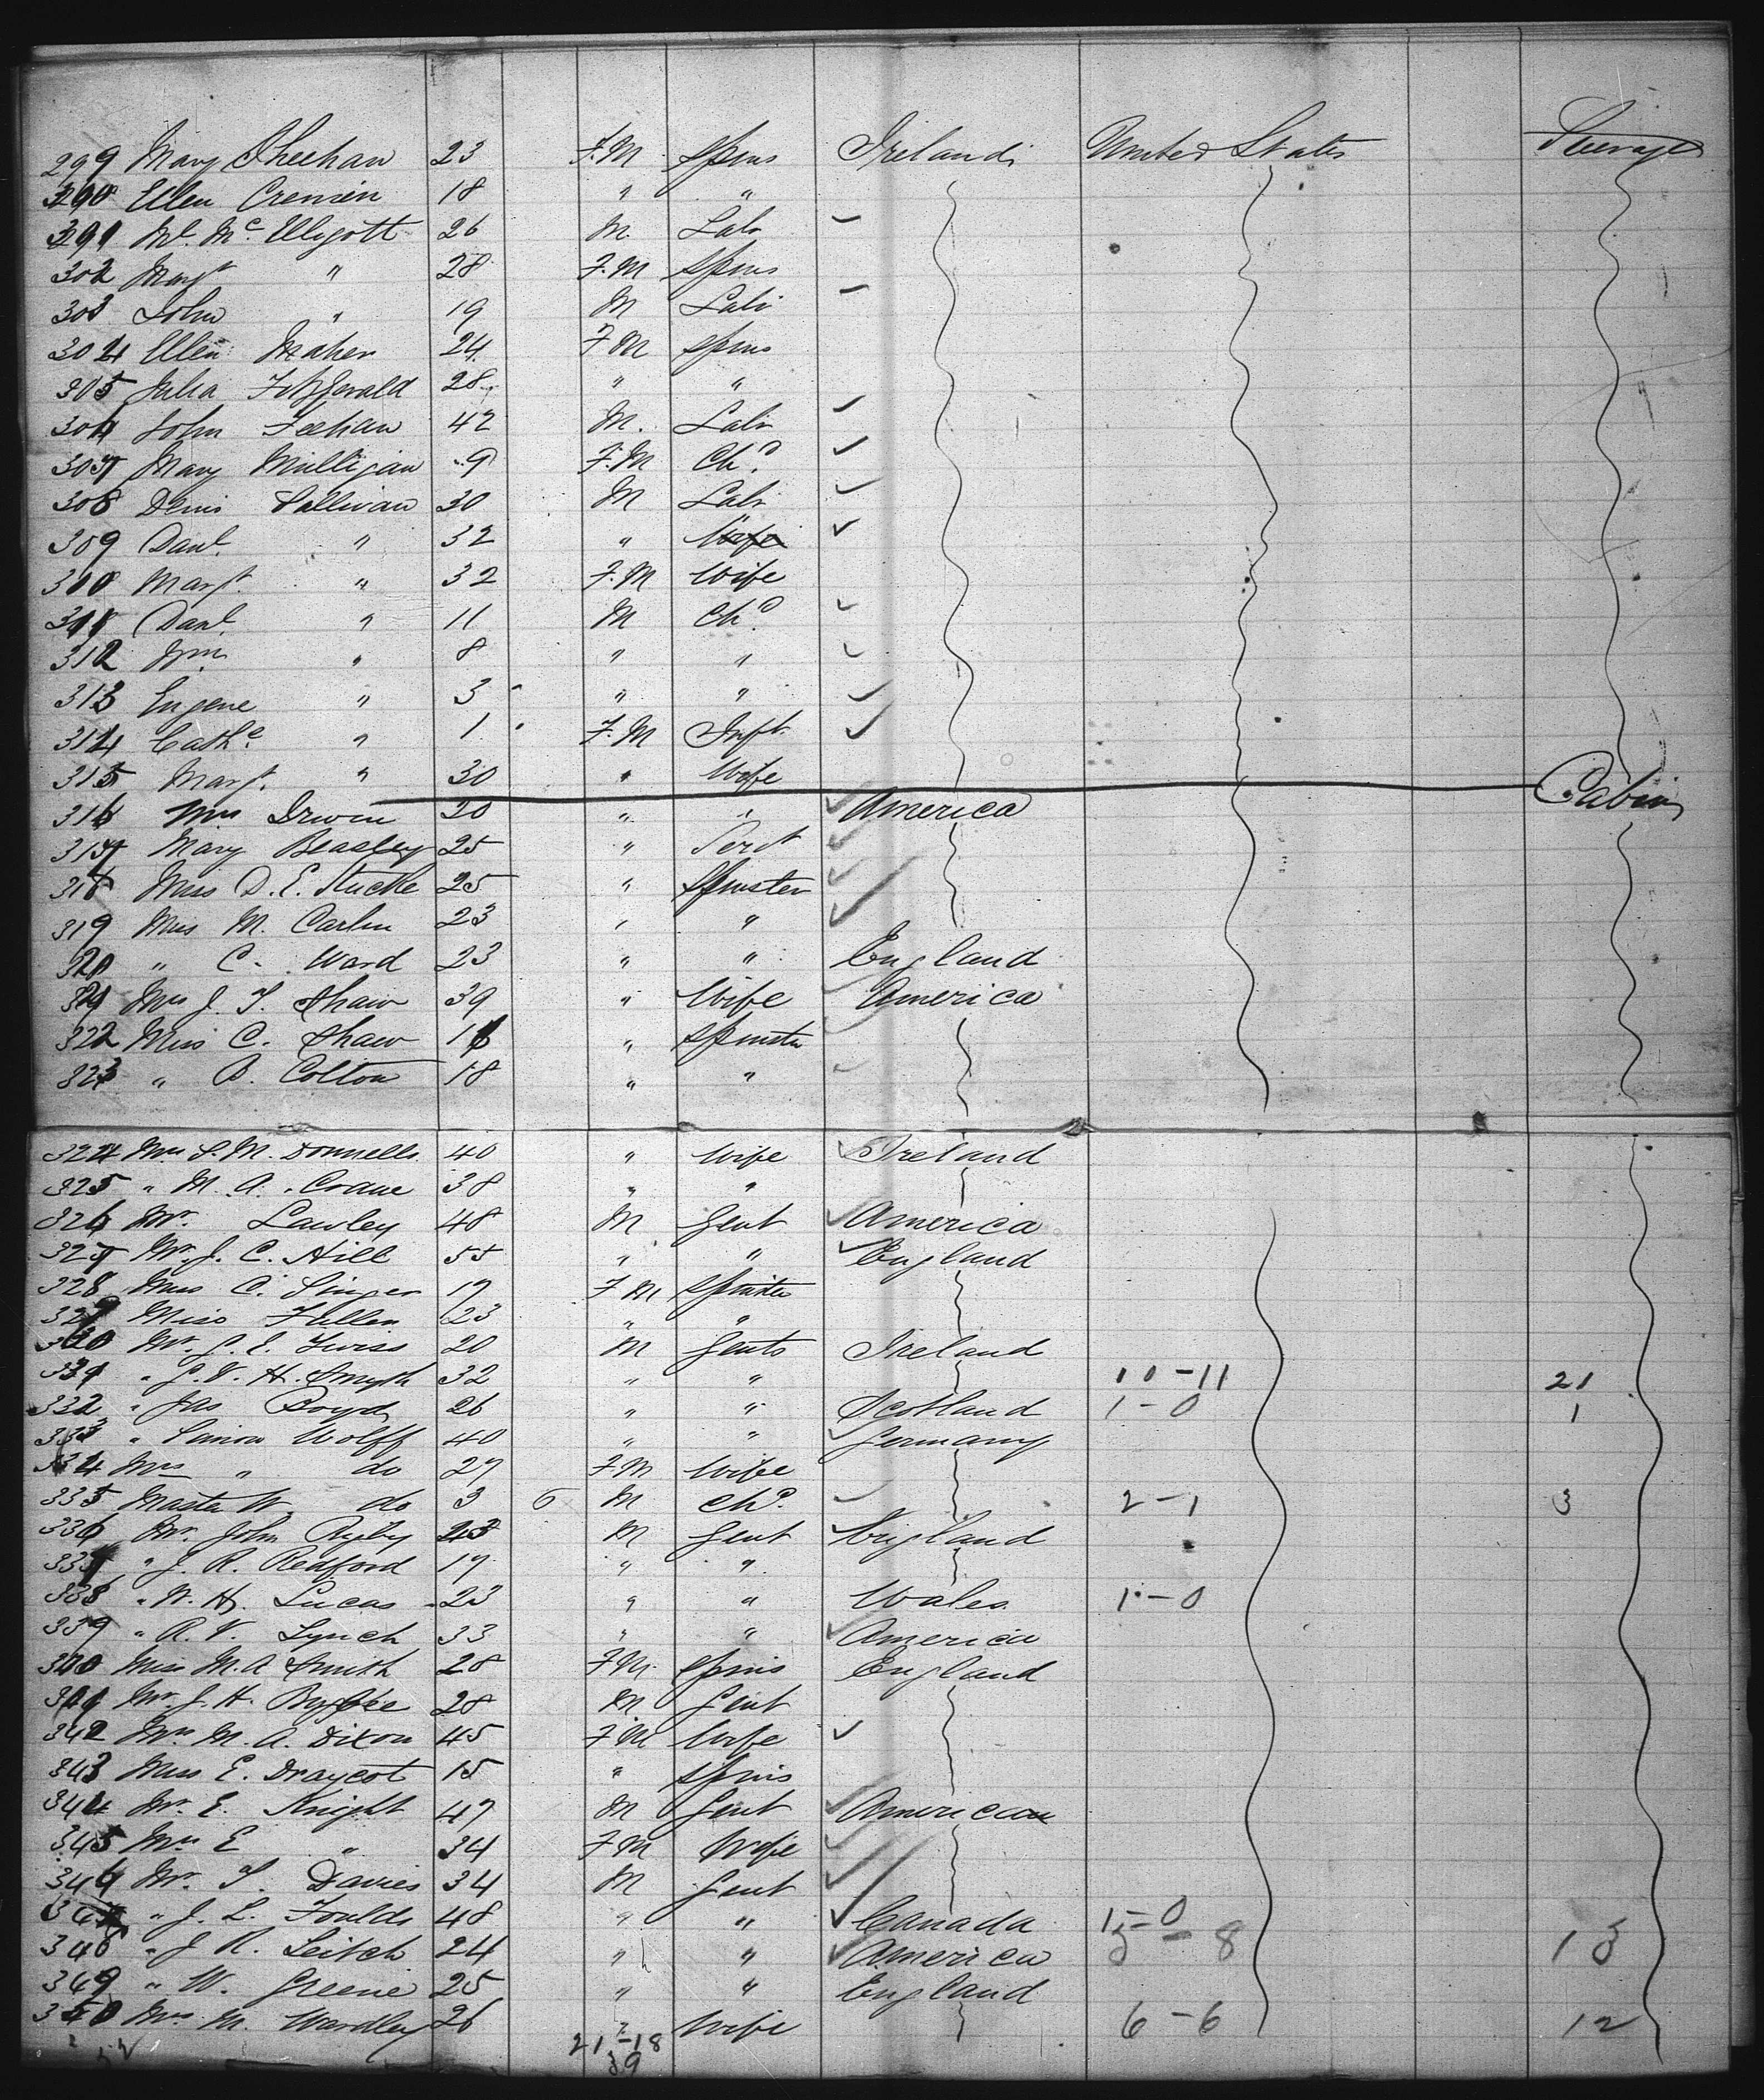 299 Mary Sheehan 23 F.M Spins Ireland United States Steerage
300 Ellen Cremin 18 " "
301 Ml. Mc Elligott 26 M. Labr
302 Margt " 28 F.M Spins
303 John " 19 M Labr
304 Ellen Maher 24 F M Spins
305 Julia Fitzgerald 28 " "
306 John Feehan 42 M. Labr
307 Mary Milligan 9 F.M Chd.
308 Denis Sullivan 30 M Labr
309 Danl. " 32 "
310 Margt. " 32 F.M Wife
311 Danl. " 11 M Chd.
312 Wm. " 8 " "
313 Eugene " 3 " "
314 Cathe. " 1 F.M Inft.
315 Margt. " 30 " Wife
316 Mrs Irwin 20 " " America Cabin
317 Mary Beasley 25 "
318 Miss D. E. 25 " Spinster
319 Miss M. Carlin 23 " "
320 " C. Ward 23 " " England
321 Mrs J. T. Shaw 39 " Wife America
322 Miss C. Shaw 16 " Spinster
323 " B. Colton 18 " "
324 Mrs S. M. Donnells 40 " Wife Ireland
325 " M. A. Crane 38 " "
326 Mr. Lawley 48 M Gent America
327 Mr. J. C. Hill 55 " " England
328 Miss C. Singer 17 F M Spinster
329 Miss Fullen 23 " "
330 Mr. G. E. Twiss 20 M Gents Ireland
331 " H. Smyth 32 " " 10-11 21
332 " Jas Boyd 26 " " Scotland 1-0 1
333 " Simon Wolff 40 " " Germany
334 Mrs " do 27 F M Wife
335 Master W. do 3 6 M Chd. 2-1 3
336 Mr. John Rigby 23 M Gent England
337 " J. R. Redford 17 " "
338 " W. H. Lucas 23 " " Wales 1-0
339 " R. V. Lynch 33 " " America
340 Miss M. A Smith 28 F M. Spins England
341 Mr. J. H. 28 M. Gent
342 Mrs. M. A. Dixon 45 F M Wife
343 Miss E. Draycot 15 " Spins
344 Mr. E. Knight 47 M Gent America
345 Mrs E " 34 F M Wife
346 Mr. T. Davies 34 M Gent
347 " J. L. Foulds 48 " " Canada 1-0
348 " J R. Leitch 24 " " America 5-8 13
349 " W. Greene 25 " " England
350 Mrs. M. Wardley 26 " Wife 6-6 12
21-18
39